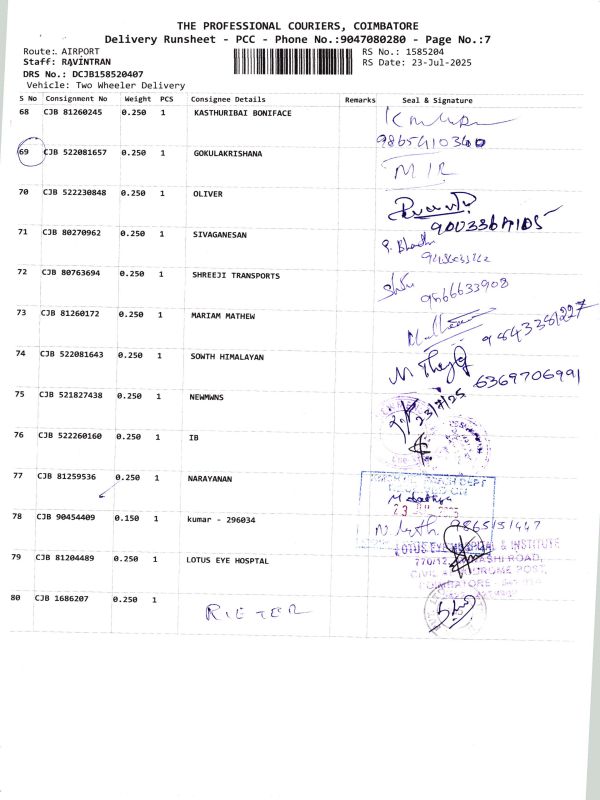 THE PROFESSIONAL COURIERS, COIMBATORE
Delivery Runsheet - PCC - Phone No.:9047080280 - Page No.:7
Route: AIRPORT
RS No.: 1585204
Staff: RAVINTRAN
RS Date: 23-Jul-2025
DRS No.: DCJB158520407
Vehicle: Two Wheeler Delivery
S No Consignment No Weight PCS Consignee Details Remarks Seal & Signature
68 CJB 81260245 0.250 1 KASTHURIBAI BONIFACE
9865410340
69 CJB 522081657 0.250 1 GOKULAKRISHANA
70 CJB 522230848 0.250 1 OLIVER
71 CJB 80270962 0.250 1 SIVAGANESAN
72 CJB 80763694 0.250 1 SHREEJI TRANSPORTS
9566633908
73 CJB 81260172 0.250 1 MARIAM MATHEW
9843381227
74 CJB 522081643 0.250 1 SOWTH HIMALAYAN
6369706991
75 CJB 521827438 0.250 1 NEWMWNS
23/7/25
76 CJB 522260160 0.250 1 IB
77 CJB 81259536 0.250 1 NARAYANAN
78 CJB 90454409 0.150 1 kumar - 296034
79 CJB 81204489 0.250 1 LOTUS EYE HOSPTAL
LOTUS EYE HOSPITAL & INSTITUTE
80 CJB 1686207 0.250 1
RIETER